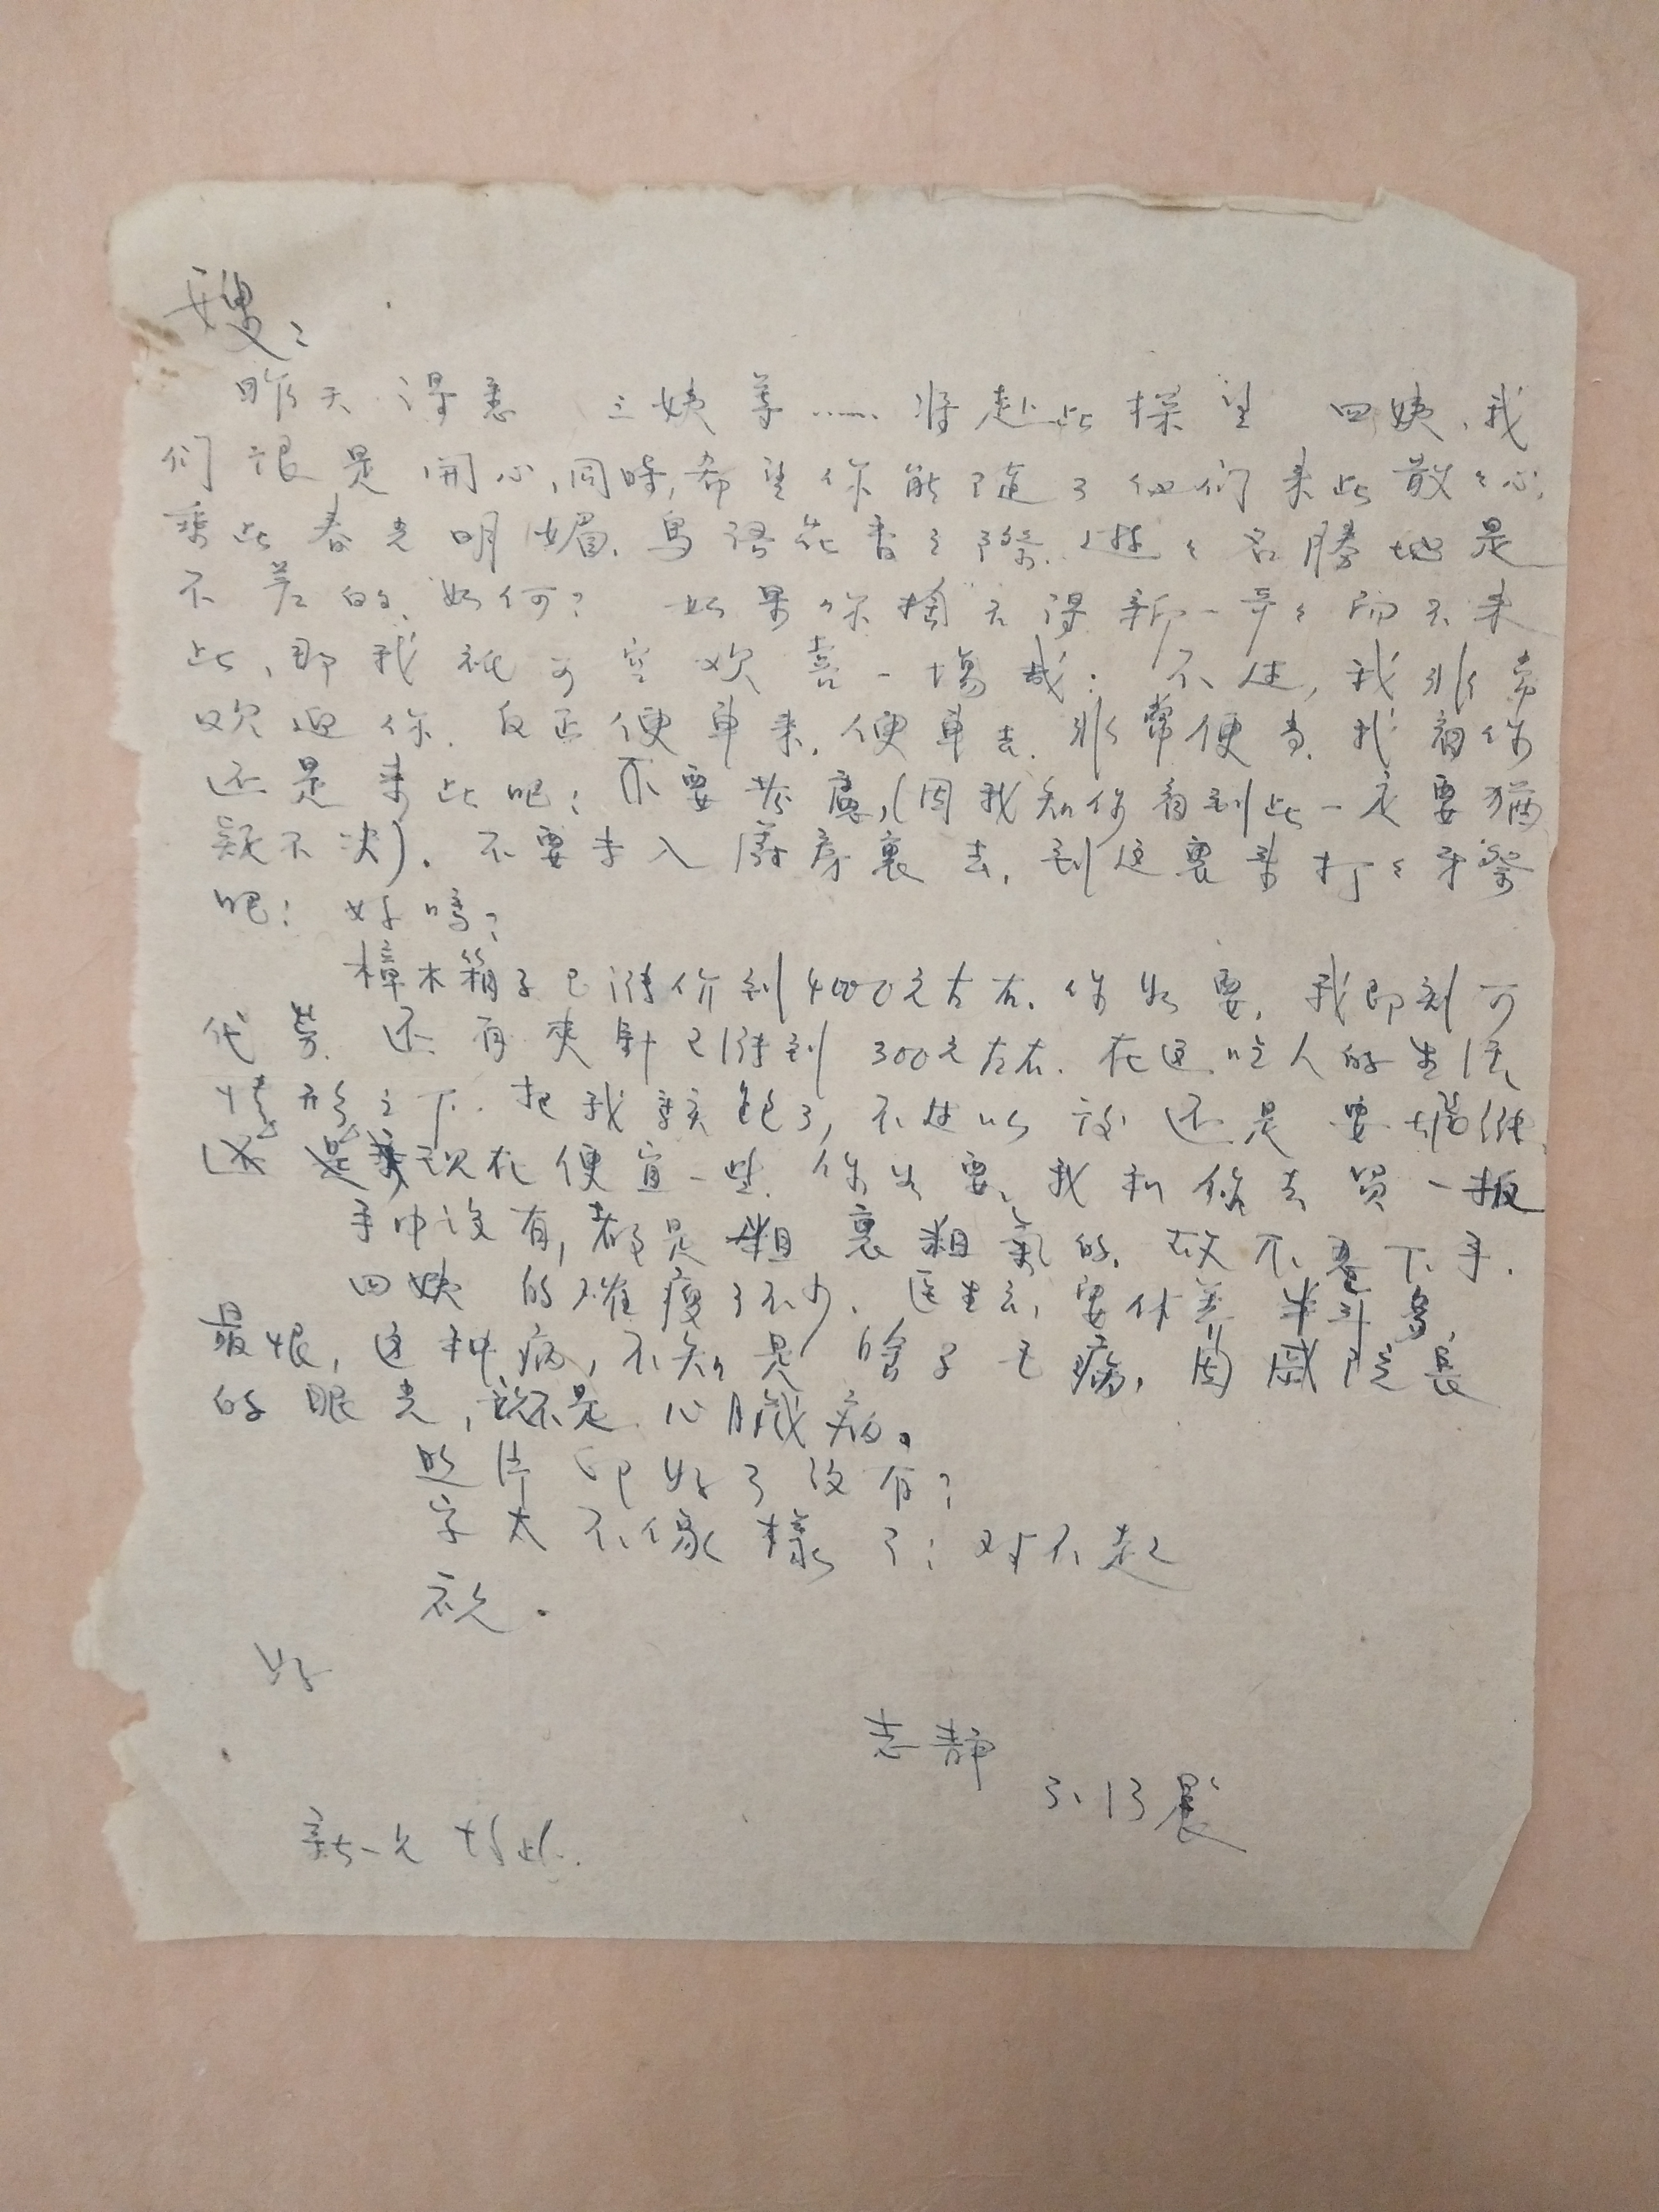 嫂：
昨天得悉 三姨等……将赴此探望 四姨、我
们很是開心,同時,希望你能隨了他们来此散々心,
乘此春光明媚、鳥语花香之際、遊々名勝地是
不差的、如何？ 如果你捨不得新一哥々而不来
此、那我祗可空欢喜一場哉：不过,我非常
欢迎你．反正便車来．便車去．非常便当．我看你
还是来此吧：不要考慮,(因我知你看到此一定要猶
疑不决)．不要李入廚房裏去，到这裏来打々牙祭
吧：好嗎？
樟木箱子已漲价到4000元左右．你如要，我即刻可
代劳．还有夾針已漲到300元左右．在这吃人的生活
情形之下．把我駭饱了,不过以後还是要漲価
还是 现在便宜一些．你如要、我和你去買一板
手巾没有,都是粗裏粗氣的．故不 下手．
四姨 的確瘦了不少．医生云,要休养半年多，
最恨，这种病，不知是啥子毛病，周戚院長
的眼光,説不是心臟病。
照片印好了没有？
字太不像樣了：对不起
祝．
好
志静
3、13晨
新一兄 均此．